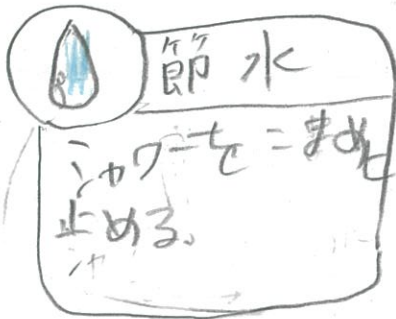 節水
シャワーをこまめに
止める。